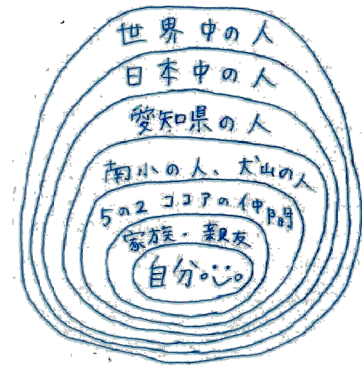 世界中の人
日本中の人
愛知県の人
南小の人、犬山の人
5の2 ココアの仲間
家族・親友
自分